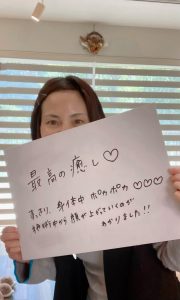 最高の癒し♡
すっきり、身体中 ポカポカ♡♡♡
施術中から顔が上がっていくのが
わかりました!!